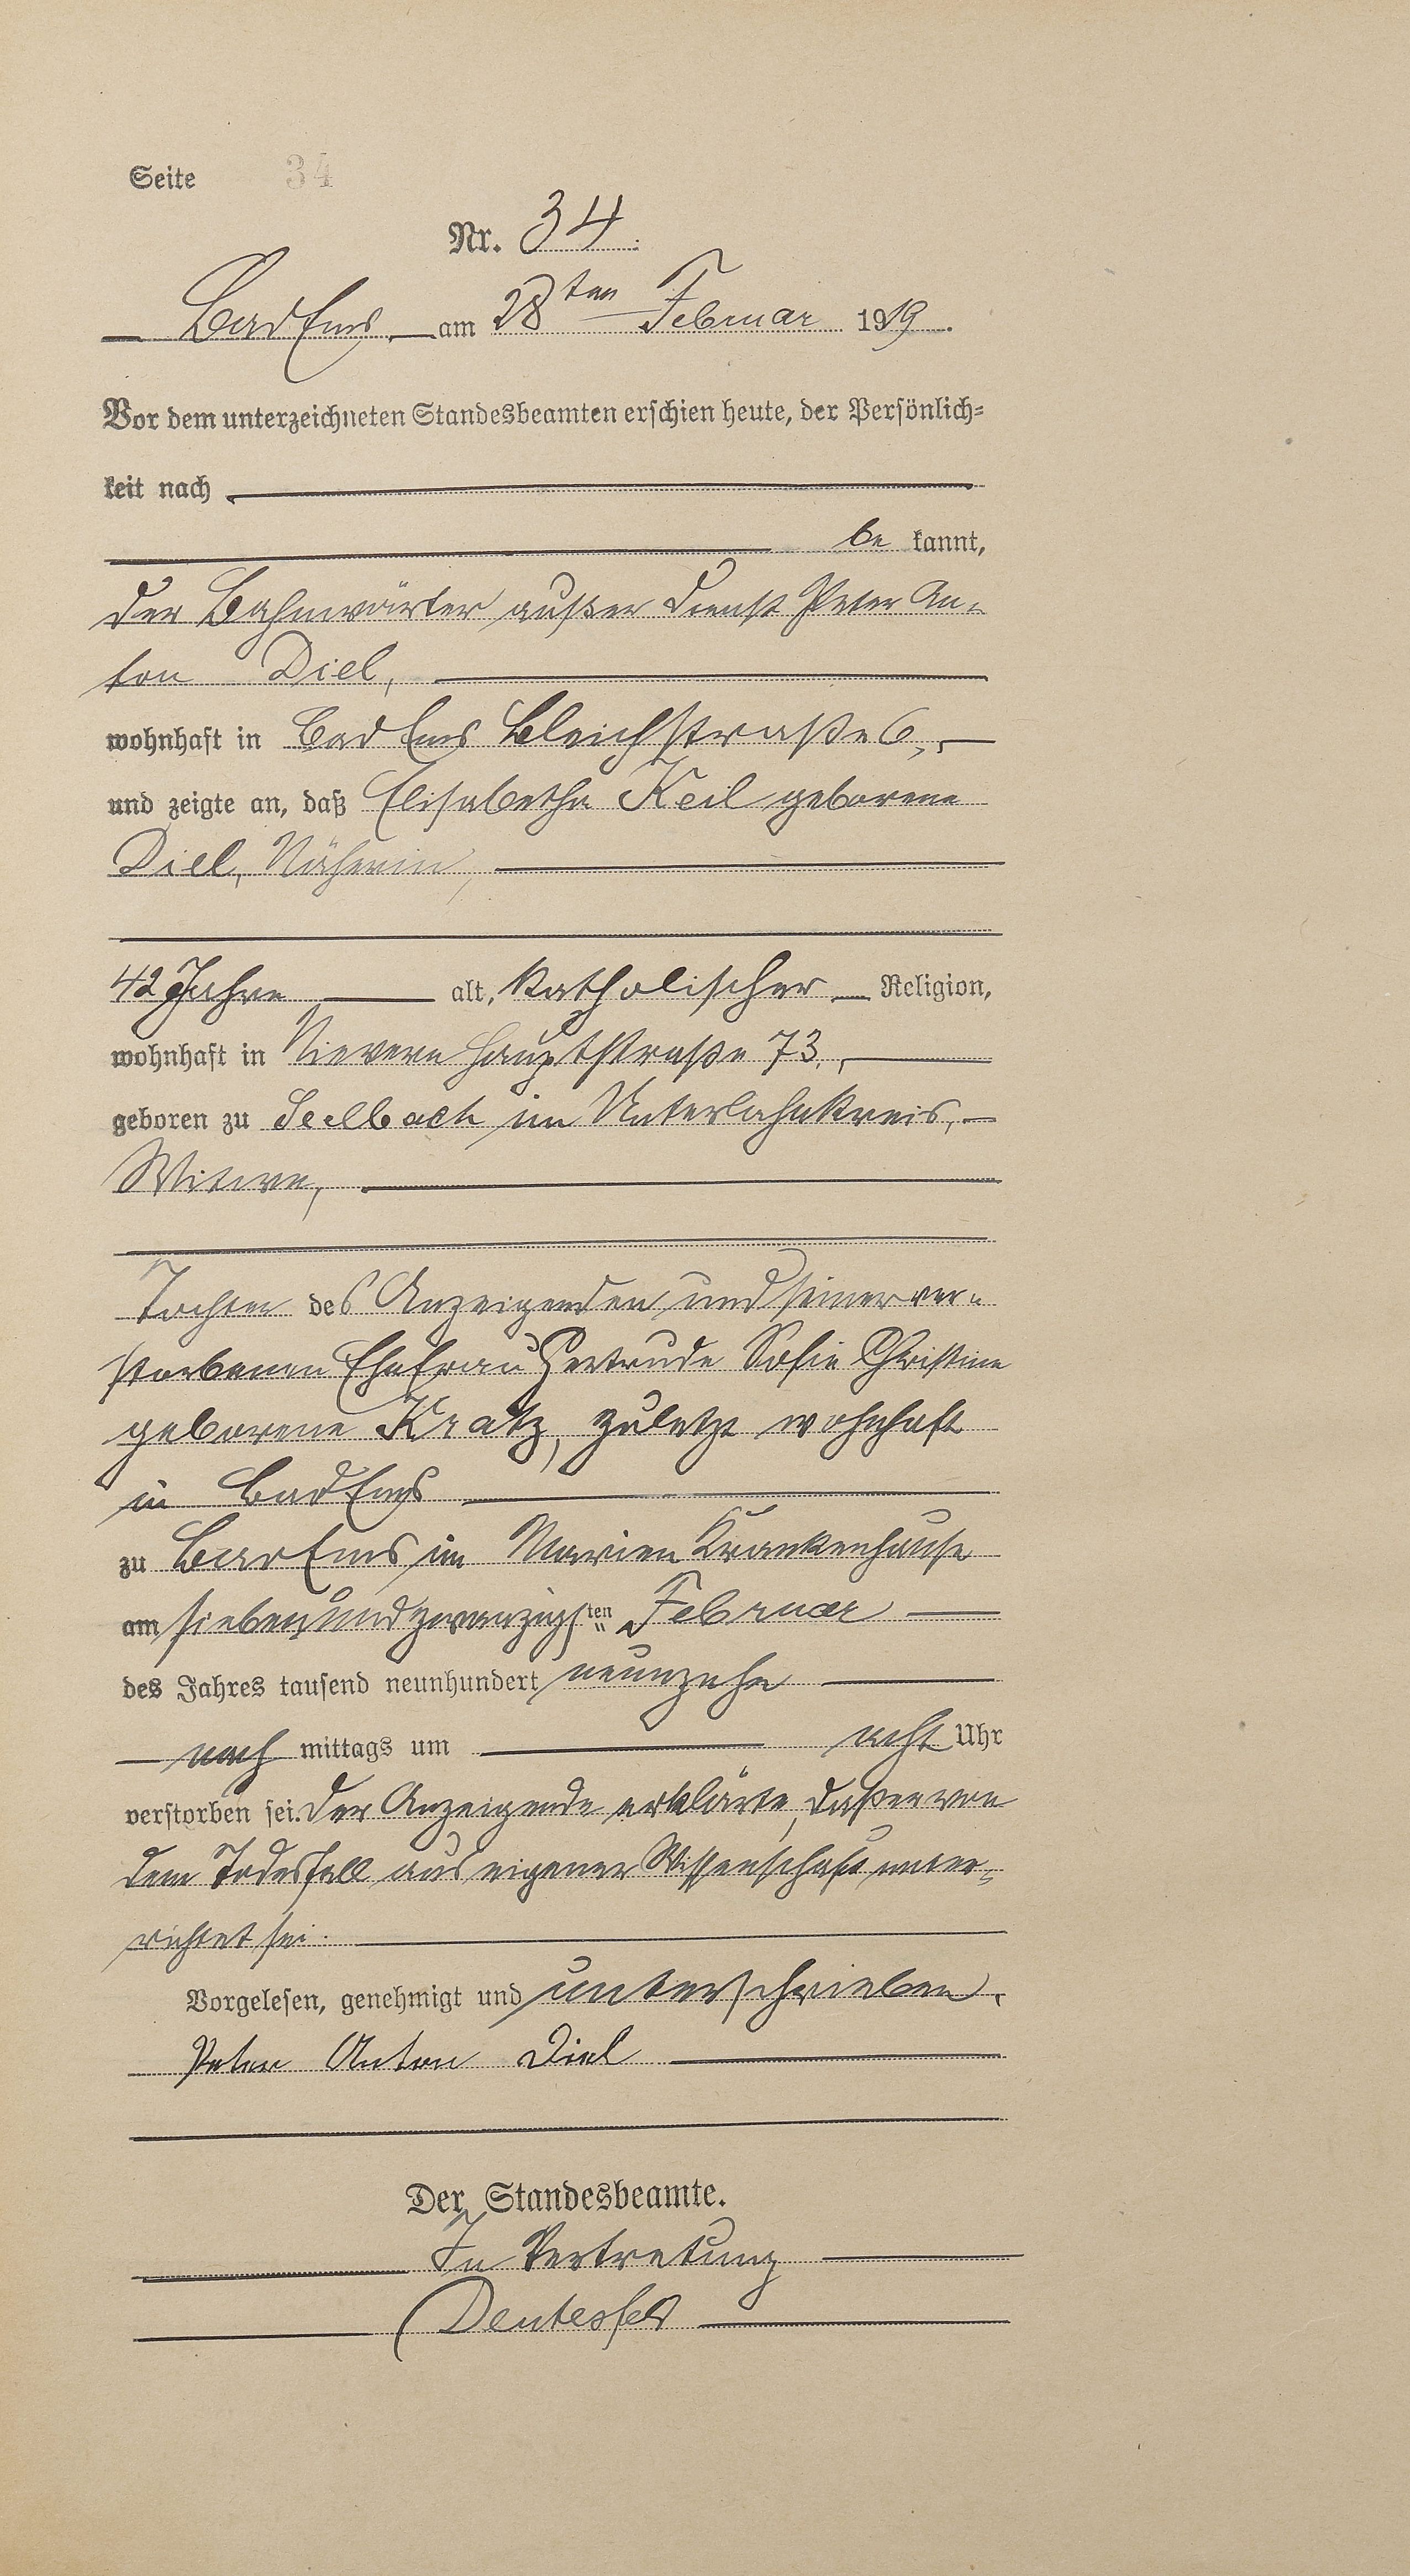 Seite 34
Nr. 34.
Bad Ems, am 28ten Februar 1919.
Vor dem unterzeichneten Standesbeamten erschien heute, der Persönlich-
keit nach
be kannt,
der Bahnwärter außer Dienst Peter An-
ton Diel,
wohnhaft in Bad Ems Bleichstraße 6,
und zeigte an, daß Elisabetha Keil geborene
Diel, Näherin,
42 Jahre alt, katholischer Religion,
wohnhaft in Nievern Hauptstraße 73,
geboren zu Seelbach im Unterlahnkreis,
Witwe,
Tochter des Anzeigenden und seiner ver-
storbenen Ehefrau Gertrude Sofie Christine
geborene Kratz, zuletzt wohnhaft
in Bad Ems
zu Bad Ems im Marien Krankenhause
am siebenundzwanzigsten Februar
des Jahres tausend neunhundert neunzehn
nach mittags um acht Uhr
verstorben sei. Der Anzeigende erklärte, daß er von
dem Todesfall aus eigener Wissenschaft unter-
richtet sei.
Vorgelesen, genehmigt und unterschrieben.
Peter Anton Diel
Der Standesbeamte.
In Vertretung